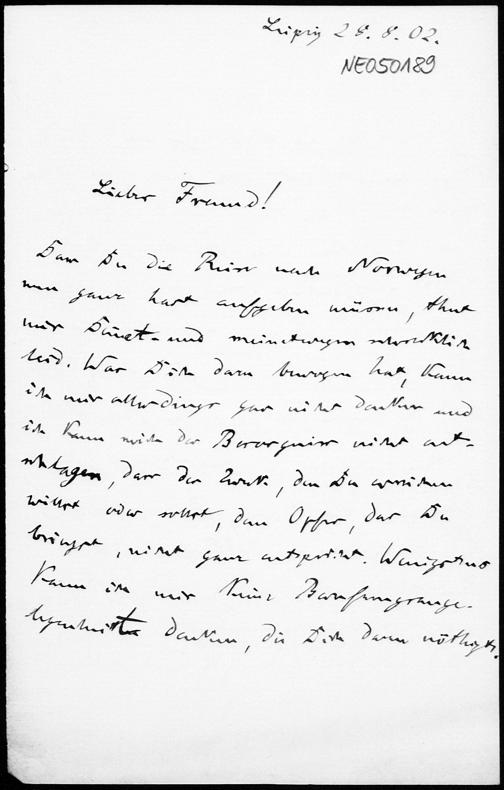 Leipzig 28.8.02.
NE050189
Lieber Freund!
Dass Du die Reise nach Norwegen
nun ganz hast aufgeben müssen, thut
mir Deinet- und meinetwegen schrecklich
leid. Was Dich dazu bewogen hat, kann
ich mir allerdings gar nicht denken und
ich kann mich der Besorgniss nicht ent-
schlagen, dass der Zweck, den Du erreichen
willst oder sollst, dem Opfer, das Du
bringst, nicht ganz entspricht. Wenigstens
kann ich mir keine Berufungsange-
legenheit denken, die Dich dazu nöthigte.